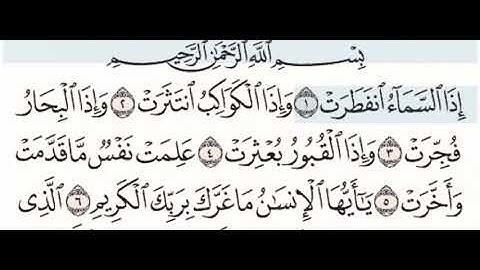 بِسْمِ ٱللَّهِ ٱلرَّحْمَٰنِ ٱلرَّحِيمِ
إِذَا ٱلسَّمَآءُ ٱنفَطَرَتْ ١ وَإِذَا ٱلْكَوَاكِبُ ٱنتَثَرَتْ ٢ وَإِذَا ٱلْبِحَارُ
فُجِّرَتْ ٣ وَإِذَا ٱلْقُبُورُ بُعْثِرَتْ ٤ عَلِمَتْ نَفْسٌ مَّا قَدَّمَتْ
وَأَخَّرَتْ ٥ يَٰٓأَيُّهَا ٱلْإِنسَٰنُ مَا غَرَّكَ بِرَبِّكَ ٱلْكَرِيمِ ٦ ٱلَّذِى